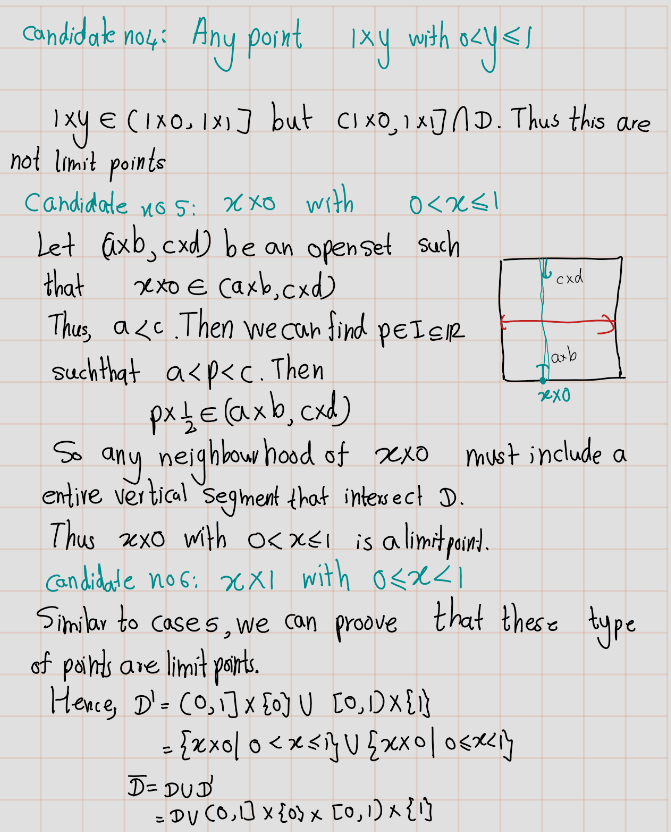 Candidate no4: Any point 1×y with 0<y≤1
1×y ∈ (1×0, 1×1] but (1×0, 1×1]∩D. Thus this are
not limit points
Candidate no 5: x×0 with 0<x≤1
Let (a×b, c×d) be an openset such
that x×0 ∈ (a×b, c×d)
Thus, a<c. Then we can find p∈I⊆ℝ
suchthat a<p<c. Then
p×½ ∈ (a×b, c×d)
c×d
a×b
x×0
So any neighbourhood of x×0 must include a
entire vertical segment that intersect D.
Thus x×0 with 0<x≤1 is a limit point.
Candidate no6: x×1 with 0≤x<1
Similar to case 5, we can proove that these type
of points are limit points.
Hence, D' = (0,1]×{0} ∪ [0,1)×{1}
= {x×0| 0<x≤1} ∪ {x×0| 0≤x<1}
D̅ = D∪D'
= D∪(0,1]×{0}×[0,1)×{1}